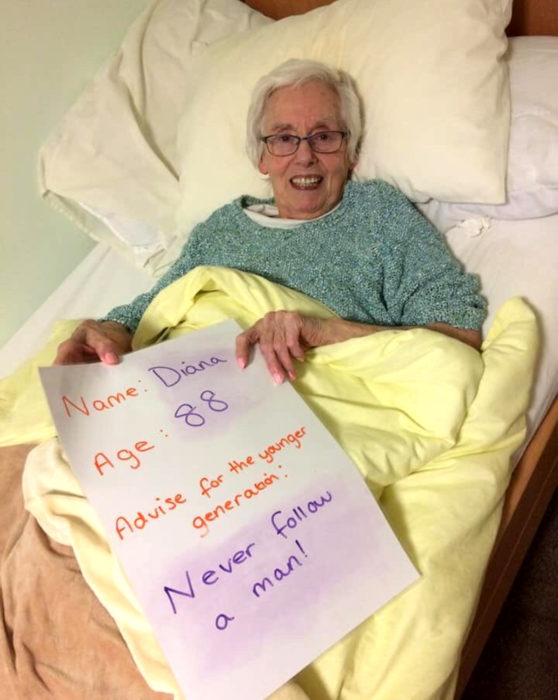 Name: Diana
Age: 88
Advise for the younger
generation:
Never follow
a man!